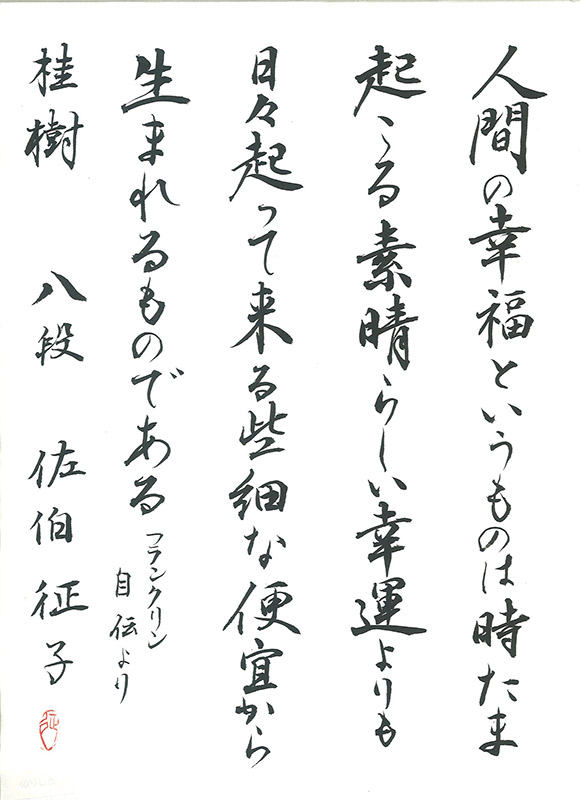 人間の幸福というものは時たま
起こる素晴らしい幸運よりも
日々起って来る些細な便宜から
生まれるものである
フランクリン
自伝より
桂樹 八段 佐伯征子